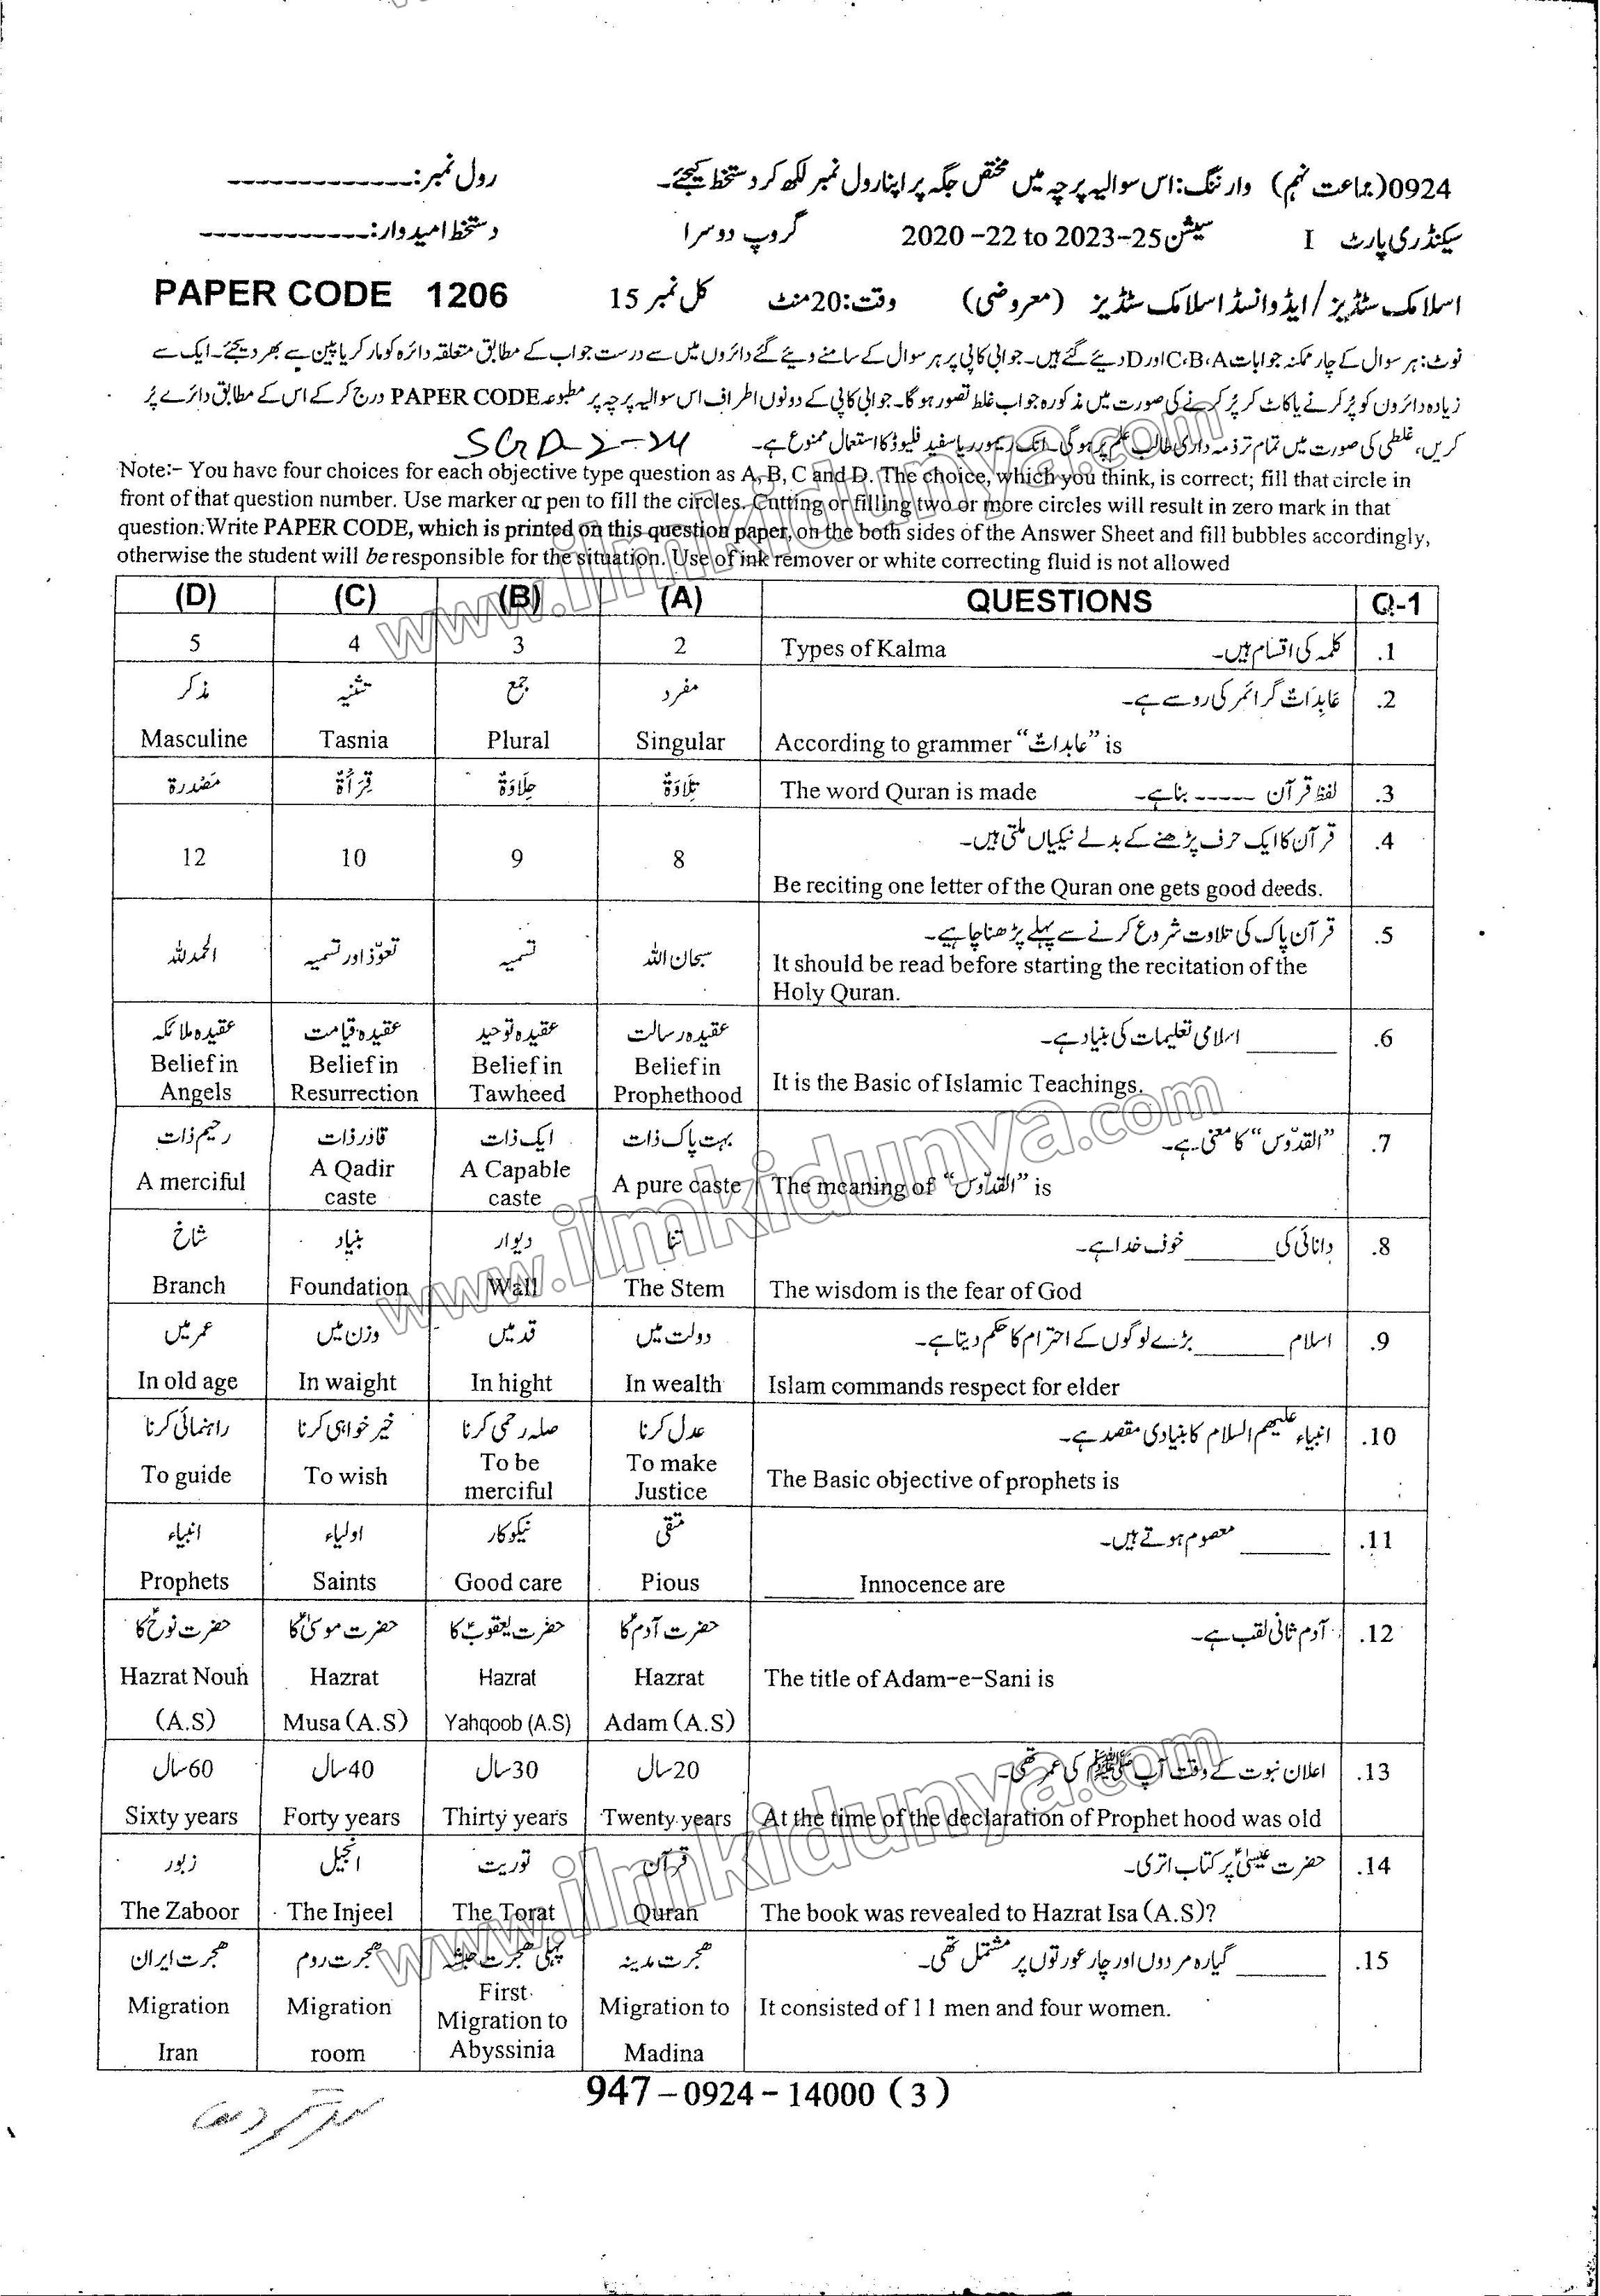 0924(جماعت نہم) وارننگ: اس سوالیہ پرچہ میں مختص جگہ پر اپنا رول نمبر لکھ کر دستخط کیجئے۔ رول نمبر: -------------
سیکنڈری پارٹ I سیشن 2020-22 to 2023-25 گروپ دوسرا دستخط امیدوار: -------------
اسلامک سٹڈیز / ایڈوانسڈ اسلامک سٹڈیز (معروضی) وقت: 20 منٹ کل نمبر 15 PAPER CODE 1206
نوٹ: ہر سوال کے چار ممکنہ جوابات C، B، A اور D دیئے گئے ہیں۔ جوابی کاپی پر ہر سوال کے سامنے دیئے گئے دائروں میں سے درست جواب کے مطابق متعلقہ دائرہ کو مارکر یا پین سے بھر دیجئے۔ ایک سے
زیادہ دائروں کو پُر کرنے یا کاٹ کر پُر کرنے کی صورت میں مذکورہ جواب غلط تصور ہو گا۔ جوابی کاپی کے دونوں اطراف اس سوالیہ پرچہ پر مطبوعہ PAPER CODE درج کر کے اس کے مطابق دائرے پُر
کریں، غلطی کی صورت میں تمام تر ذمہ داری طالب علم پر ہو گی۔ انک ریموور یا سفید فلیوڈ کا استعمال ممنوع ہے۔ SGD-2-24
Note:- You have four choices for each objective type question as A, B, C and D. The choice, which you think, is correct; fill that circle in
front of that question number. Use marker or pen to fill the circles. Cutting or filling two or more circles will result in zero mark in that
question. Write PAPER CODE, which is printed on this question paper, on the both sides of the Answer Sheet and fill bubbles accordingly,
otherwise the student will be responsible for the situation. Use of ink remover or white correcting fluid is not allowed
(D) (C) (B) (A) QUESTIONS Q-1
5 4 3 2 Types of Kalma کلمہ کی اقسام ہیں۔ .1
مذکر تثنیہ جمع مفرد عَابِدَاتٌ گرائمر کی رو سے ہے۔ .2
Masculine Tasnia Plural Singular According to grammer “عابداتٌ” is
مَصْدَرَة قِرَأةٌ حِلَاوَةٌ تِلَاوَةٌ The word Quran is made لفظ قرآن ----- بنا ہے۔ .3
قرآن کا ایک حرف پڑھنے کے بدلے نیکیاں ملتی ہیں۔ .4
12 10 9 8
Be reciting one letter of the Quran one gets good deeds.
قرآن پاک کی تلاوت شروع کرنے سے پہلے پڑھنا چاہیے۔ .5
الحمدللہ تعوّذ اور تسمیہ تسمیہ سبحان اللہ It should be read before starting the recitation of the
Holy Quran.
عقیدہ ملائکہ عقیدہ قیامت عقیدہ توحید عقیدہ رسالت ______ اسلامی تعلیمات کی بنیاد ہے۔ .6
Belief in Belief in Belief in Belief in It is the Basic of Islamic Teachings.
Angels Resurrection Tawheed Prophethood
رحیم ذات قادر ذات ایک ذات بہت پاک ذات “القدّوس” کا معنی ہے۔ .7
A merciful A Qadir A Capable A pure caste The meaning of “القدّوس” is
caste caste
شاخ بنیاد دیوار تنا دانائی کی ______ خوف خدا ہے۔ .8
Branch Foundation Wall The Stem The wisdom is the fear of God
عمر میں وزن میں قد میں دولت میں اسلام ______ بڑے لوگوں کے احترام کا حکم دیتا ہے۔ .9
In old age In waight In hight In wealth Islam commands respect for elder
راہنمائی کرنا خیر خواہی کرنا صلہ رحمی کرنا عدل کرنا انبیاء علیھم السلام کا بنیادی مقصد ہے۔ .10
To guide To wish To be To make The Basic objective of prophets is
merciful Justice
انبیاء اولیاء نیکوکار متقی ______ معصوم ہوتے ہیں۔ .11
Prophets Saints Good care Pious ______ Innocence are
حضرت نوحؑ کا حضرت موسیٰؑ کا حضرت یعقوبؑ کا حضرت آدمؑ کا آدم ثانی لقب ہے۔ .12
Hazrat Nouh Hazrat Hazrat Hazrat The title of Adam-e-Sani is
(A.S) Musa (A.S) Yahqoob (A.S) Adam (A.S)
60سال 40سال 30سال 20سال اعلان نبوت کے وقت آپ ﷺ کی عمر تھی۔ .13
Sixty years Forty years Thirty years Twenty years At the time of the declaration of Prophet hood was old
زبور انجیل توریت قرآن حضرت عیسیٰؑ پر کتاب اتری۔ .14
The Zaboor The Injeel The Torat Quran The book was revealed to Hazrat Isa (A.S)?
ھجرت ایران ھجرت روم پہلی ھجرت حبشہ ھجرت مدینہ ______ گیارہ مردوں اور چار عورتوں پر مشتمل تھی۔ .15
Migration Migration First Migration to Migration to It consisted of 11 men and four women.
Iran room Abyssinia Madina
947-0924-14000 (3)
www.ilmkidunya.com
www.ilmkidunya.com
www.ilmkidunya.com